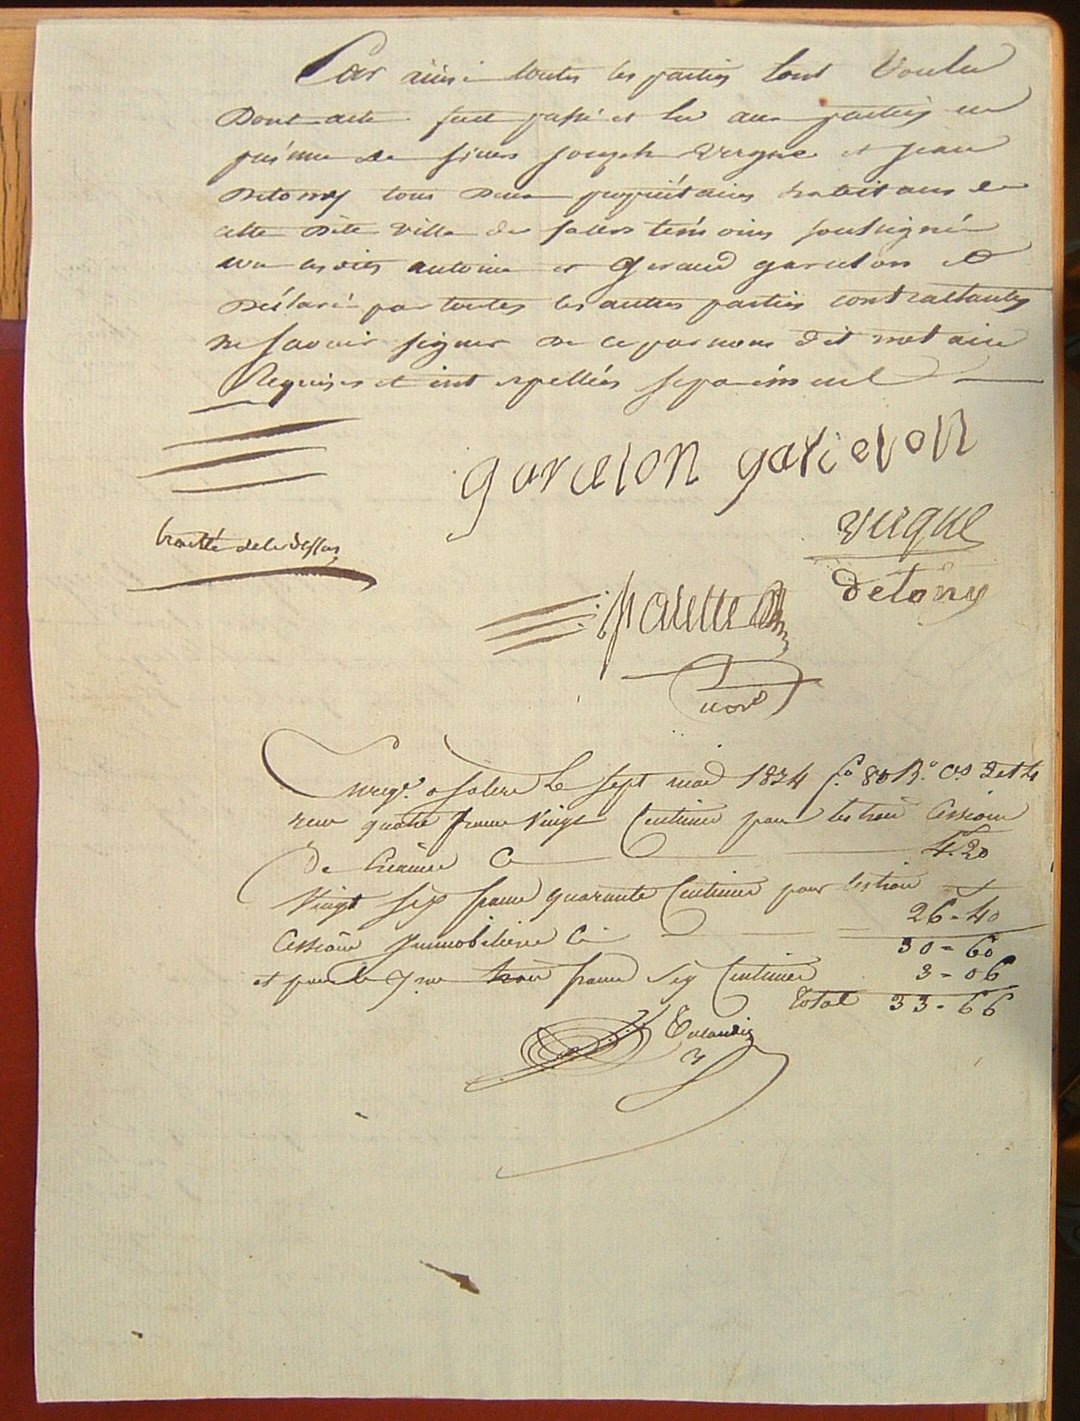 Car ainsi toutes les parties l'ont voulu
Dont acte fait passé et lu aux parties en
présence de sieurs joseph Vergne et jean
Detomy tous deux propriétaires habitans de
cette dite ville de salers témoins soussignés
avec lesdits antoine et geraud garcelon et
Déclaré par toutes les autres parties contractantes
ne savoir signer de ce par nous dit notaire
Requises et interpellées séparément
garcelon garcelon
vergne
traitté de la
detomy
no.re
Enreg.é a salers Le sept mai 1834 f.o 80 R.o c.s 3 et 4
reçu quatre francs vingt Centimes pour les trois Cessions
De Créance Ci 4-20
Vingt six francs quarante Centimes pour les trois
Cessions Immobilière Ci 26-40
30-60
et pour le 10me trois francs six Centimes 3-06
Total 33-66